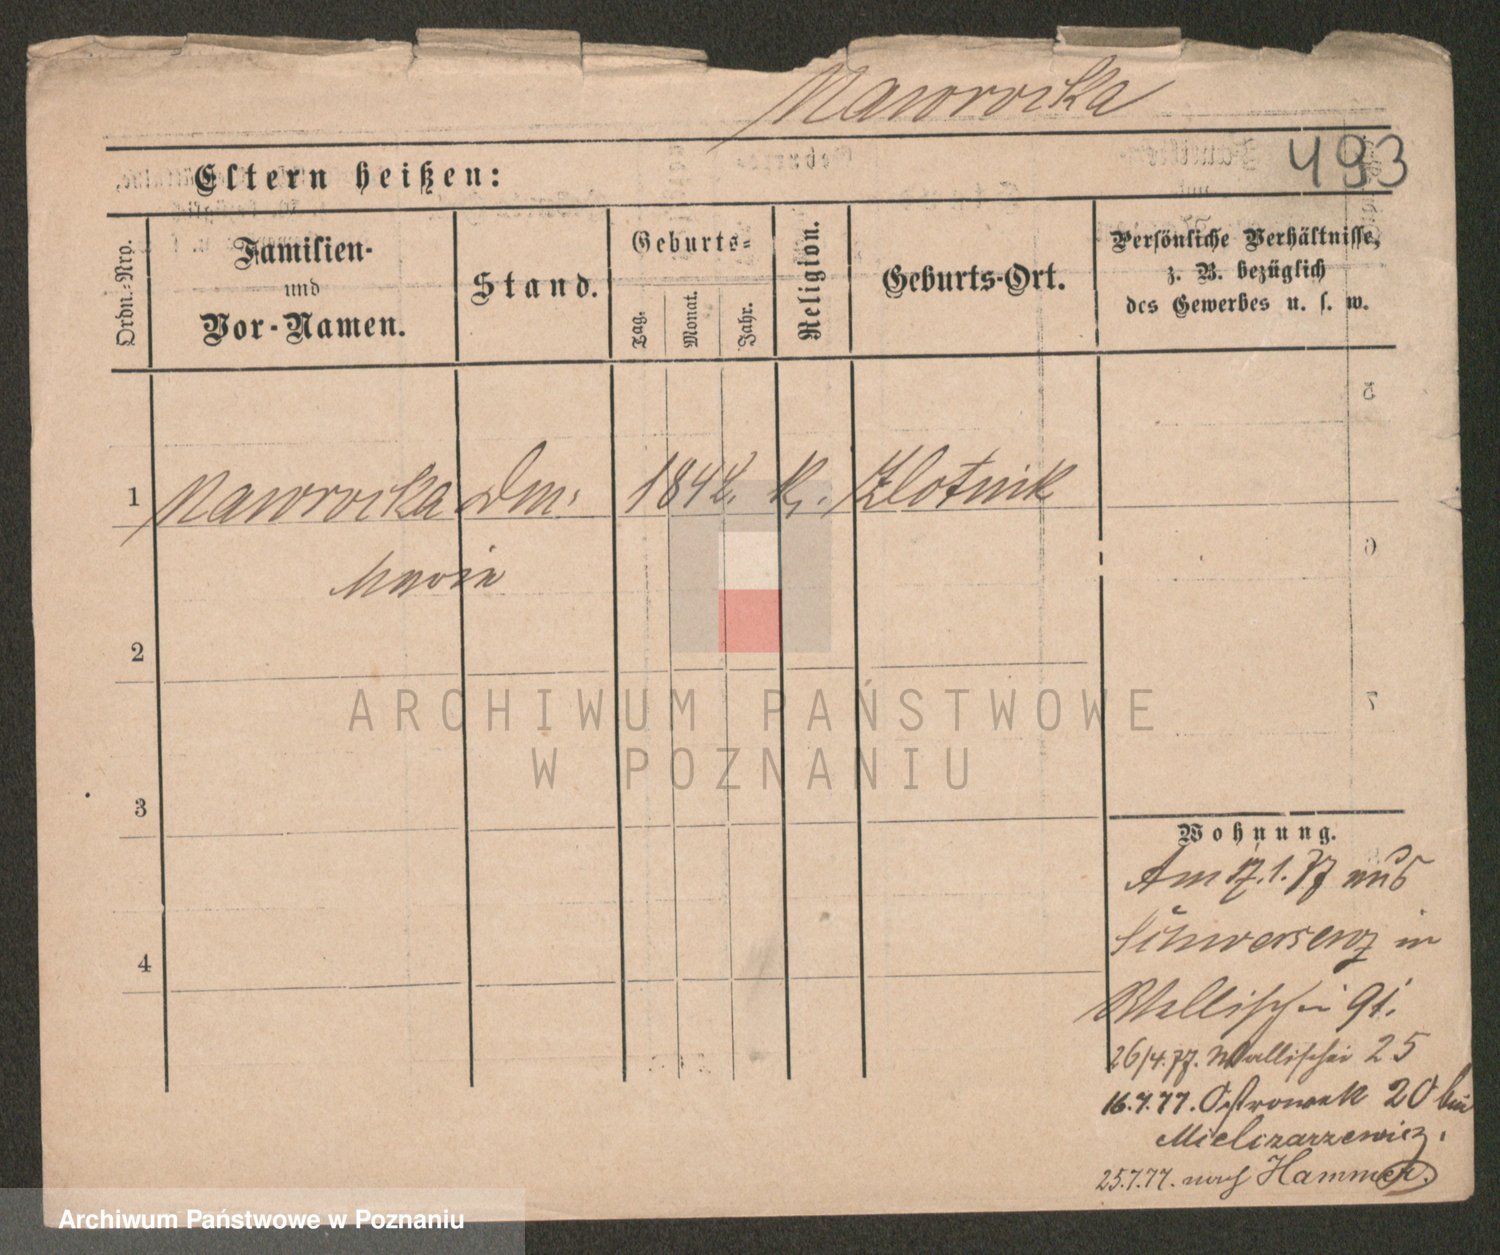 Nawrocka
493
Eltern heißen:
Ordn.-Nro.
Familien-
und
Vor-Namen.
Stand.
Geburts-
Tag.
Monat.
Jahr.
Religion.
Geburts-Ort.
Persönliche Verhältnisse,
z. B. bezüglich
des Gewerbes u. s. w.
1 Nawrocka 1848. K. Zlotnik
Marie
2
3
4
5
6
7
Wohnung.
Am 17.1.77 aus
Schwersenz in
Wallischei 91.
26/4.77. Wallischei 25
16.7.77. Ostrowek 20 bei
Mielczarzewicz.
25.7.77. nach Hammer.
ARCHIWUM PAŃSTWOWE
W POZNANIU
Archiwum Państwowe w Poznaniu